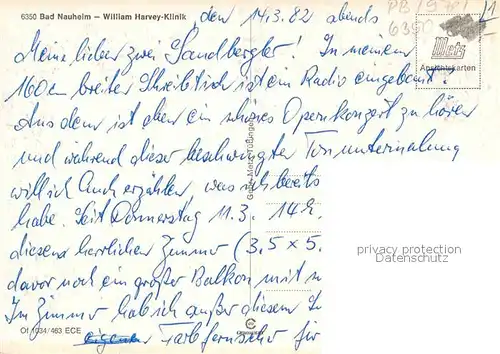 6350 Bad Nauheim – William Harvey-Klinik
den 14.3.82 abends
PB 1978
6350
Metz
Ansichtskarten
Meine lieben zwei Sandbergler! In meinem
160 cm breiten Schreibtisch ist ein Radio eingebaut.
Aus dem ist eben ein schönes Opernkonzert zu hören
und während dieser beschwingten Tonuntermalung
will ich Euch erzählen, was ich bereits
habe. Seit Donnerstag 11.3. 14
diesem herrlichen Zimmer (3,5 x 5.
privacy protection
Datenschutz
davor noch ein großer Balkon mit
Im Zimmer hab ich außer diesem
Of 1034/463 ECE
eigenen Farbfernseher für